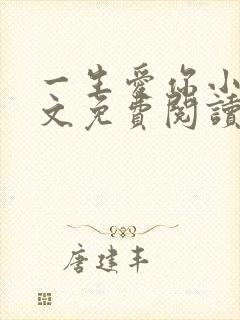 一生愛你小
文免費閱讀
唐建丰